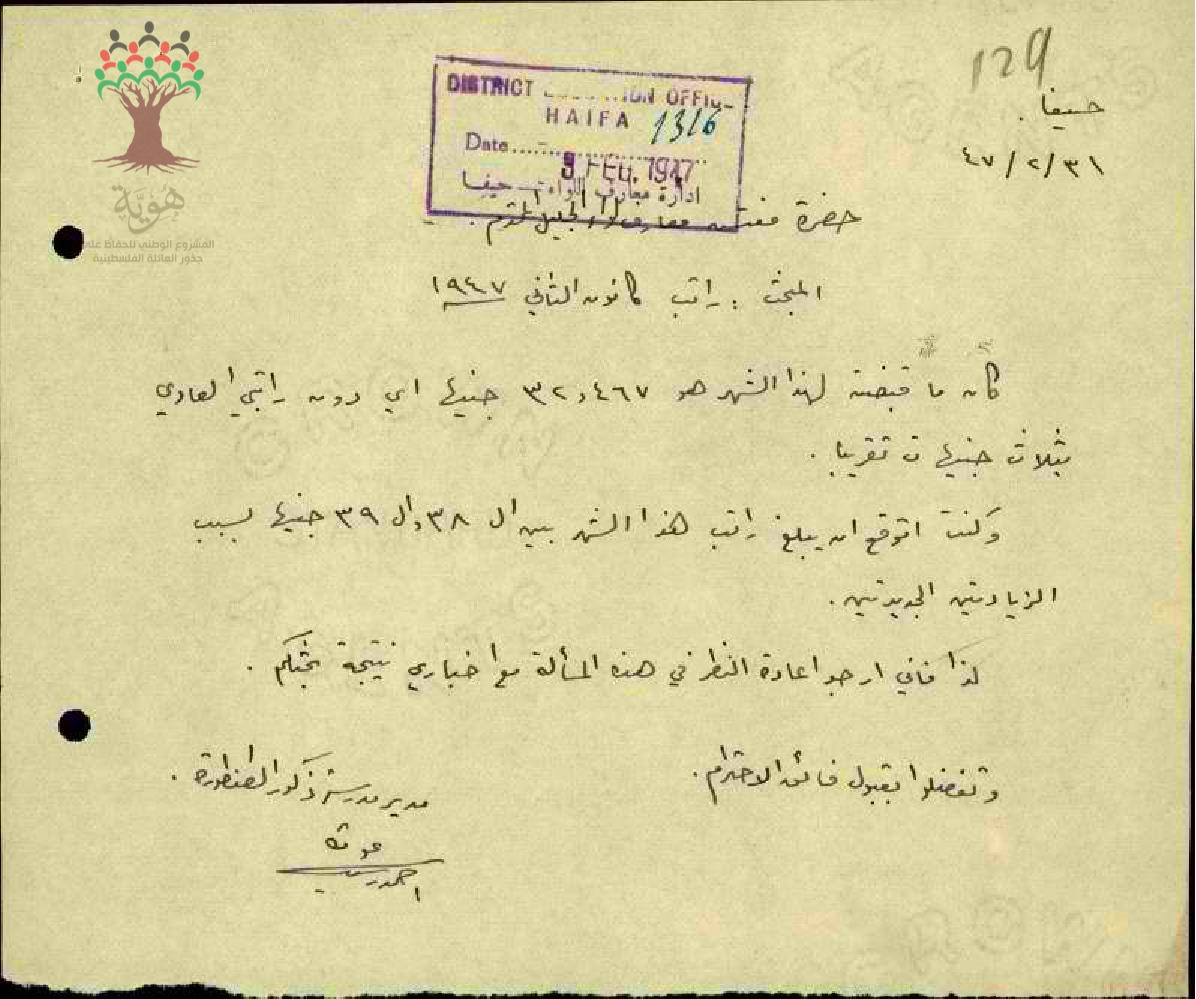 129
حيفا.
٤٧/٢/٣١
DISTRICT EDUCATION OFFICE
HAIFA 1316
Date ........ 3 FEB. 1947
ادارة معارف اللواء – حيفا
حضرة مفتش معارف لواء الجليل المحترم.
المبحث : راتب كانون الثاني ١٩٤٧
كان ما قبضته لهذا الشهر هو ٣٢,٤٦٧ جنيها اي دون راتبي العادي
بثلاث جنيهات تقريبا .
وكنت اتوقع ان يبلغ راتب هذا الشهر بين ال ٣٨ وال ٣٩ جنيها بسبب
الزيادتين الجديدتين .
لذا فاني ارجو اعادة النظر في هذه المسألة مع اخباري نتيجة بحثكم .
وتفضلوا بقبول فائق الاحترام .
مدير مدرسة ذكور الطنطورة .
احمد
هُويّة
المشروع الوطني للحفاظ على
جذور العائلة الفلسطينية